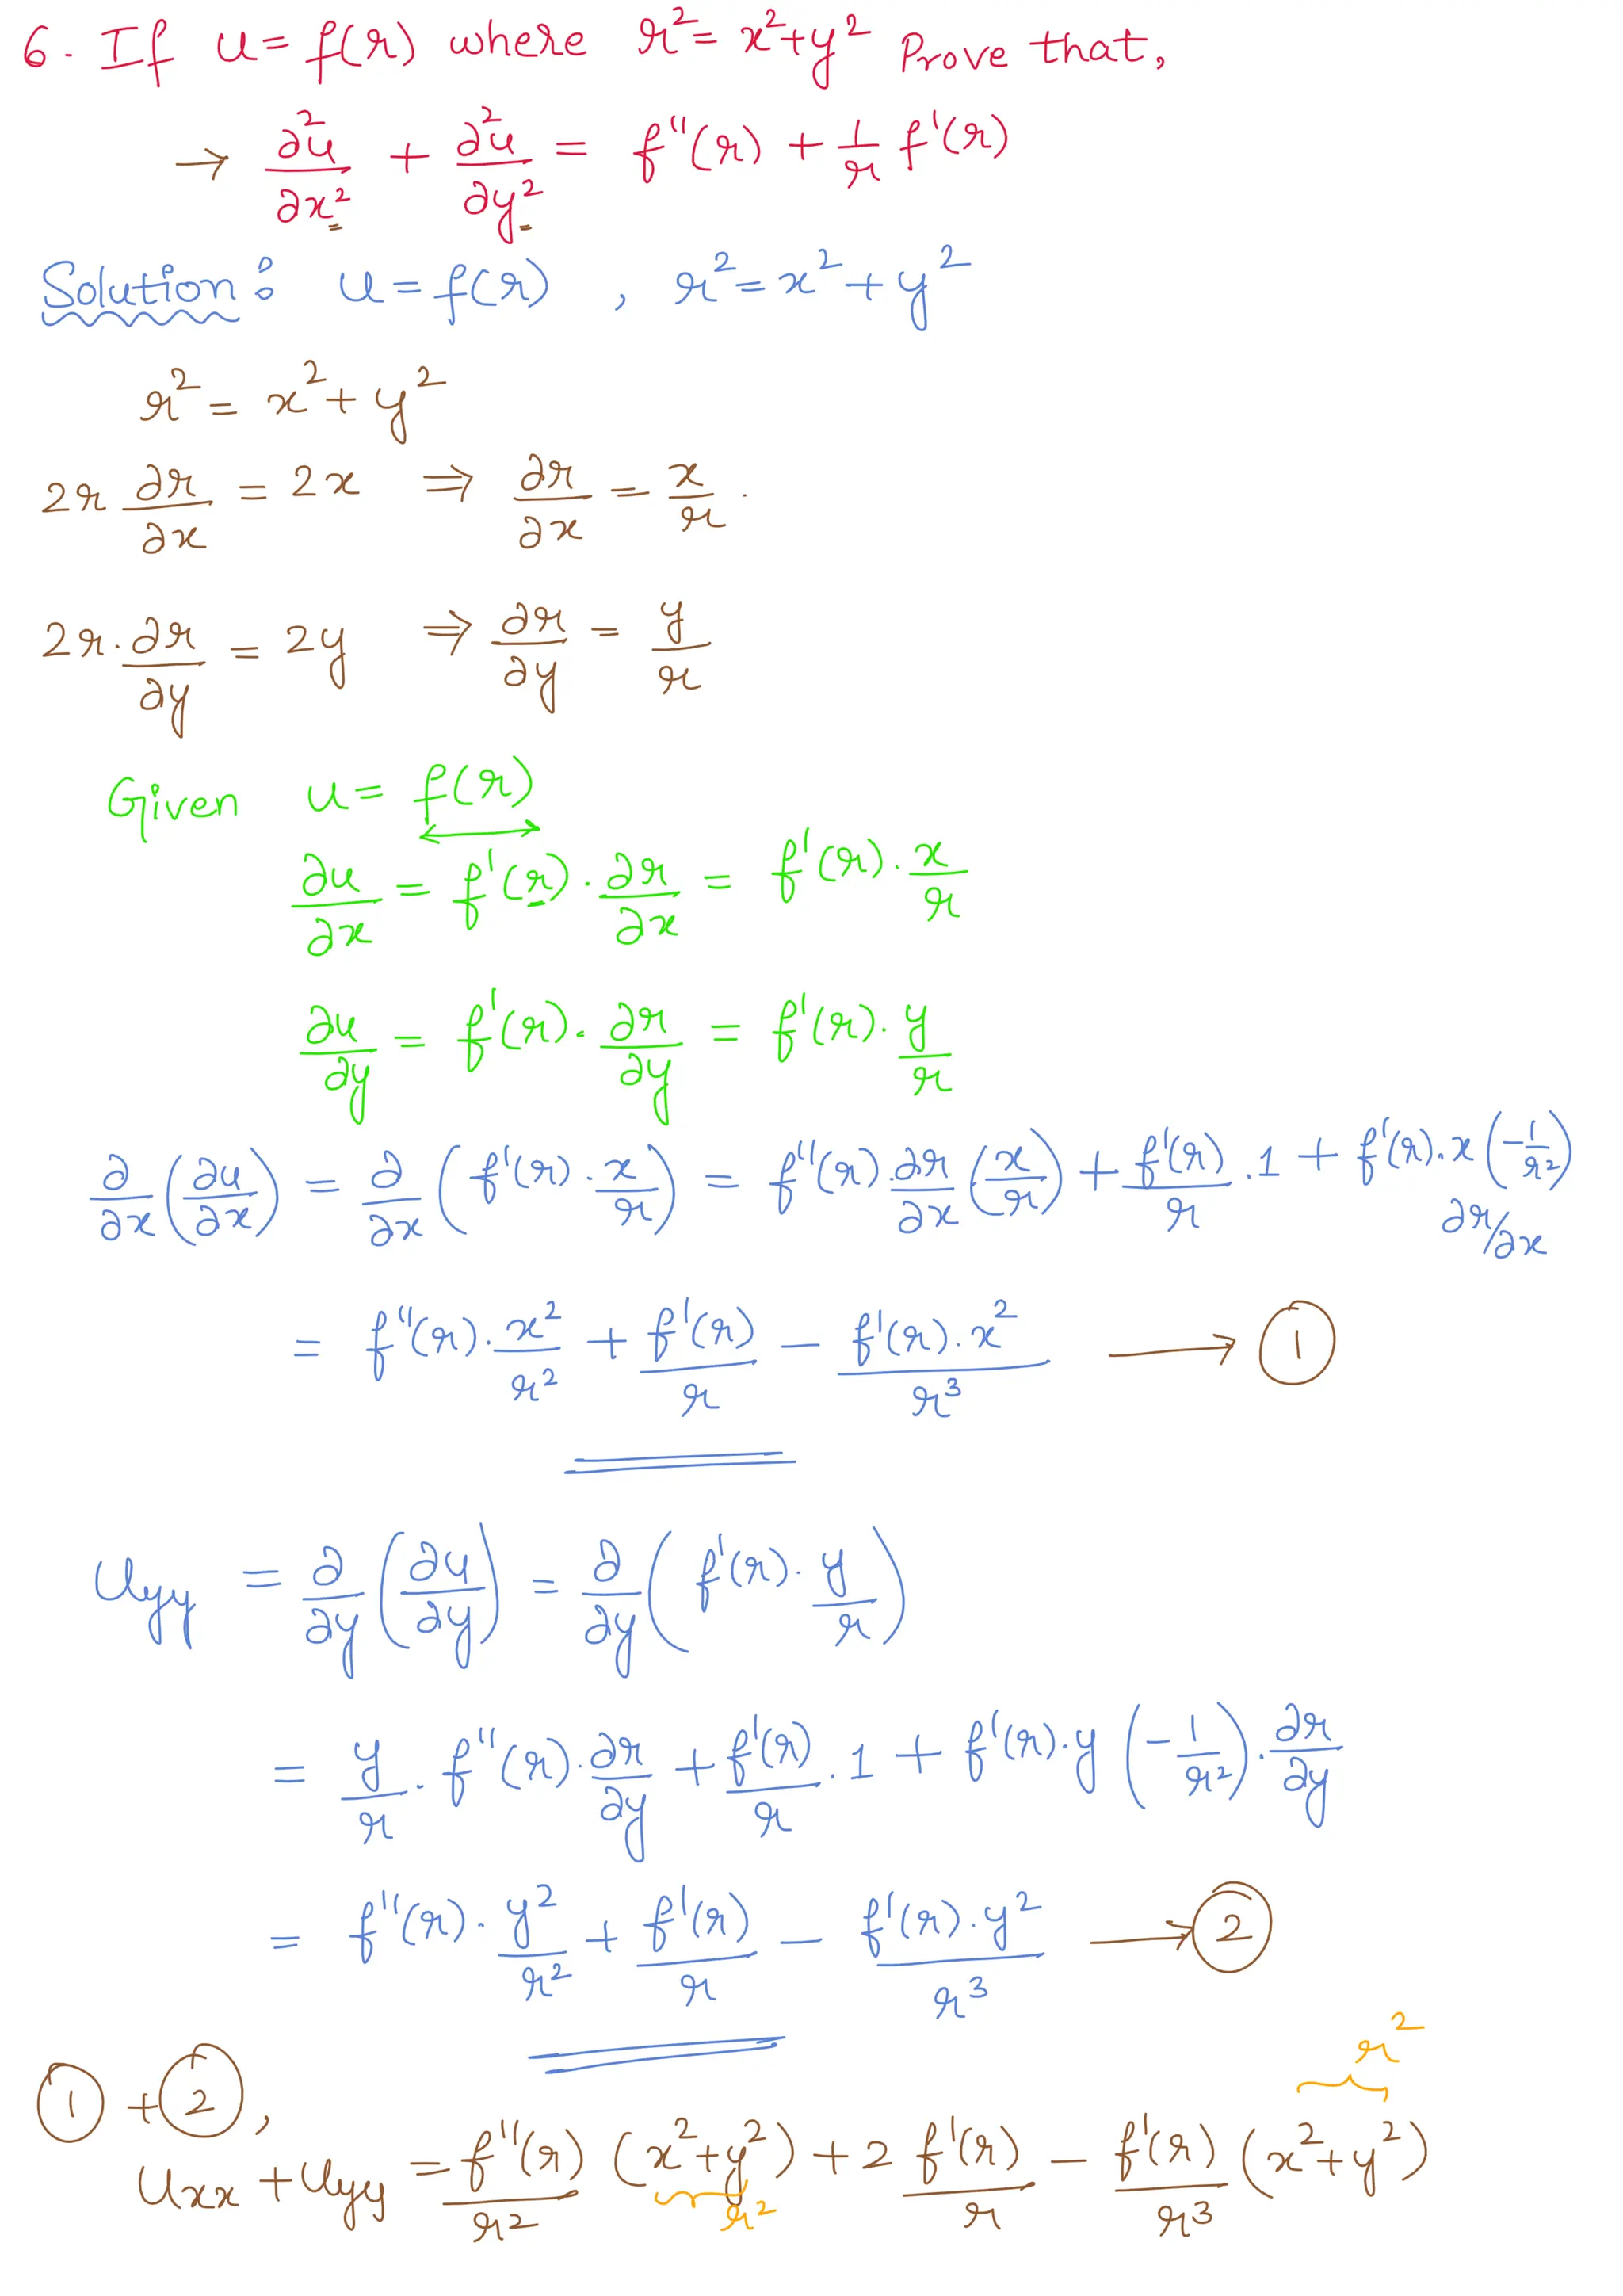 6. If u = f(r) where r² = x² + y² Prove that,
→ ∂²u/∂x² + ∂²u/∂y² = f''(r) + 1/r f'(r)
Solution: u = f(r) , r² = x² + y²
r² = x² + y²
2r ∂r/∂x = 2x ⇒ ∂r/∂x = x/r .
2r · ∂r/∂y = 2y ⇒ ∂r/∂y = y/r
Given u = f(r)
∂u/∂x = f'(r) · ∂r/∂x = f'(r) · x/r
∂u/∂y = f'(r) · ∂r/∂y = f'(r) · y/r
∂/∂x (∂u/∂x) = ∂/∂x (f'(r) · x/r) = f''(r) · ∂r/∂x (x/r) + f'(r)/r · 1 + f'(r) · x (-1/r²) ∂r/∂x
= f''(r) · x²/r² + f'(r)/r - f'(r) · x²/r³ → ①
u_yy = ∂/∂y (∂u/∂y) = ∂/∂y (f'(r) · y/r)
= y/r · f''(r) · ∂r/∂y + f'(r)/r · 1 + f'(r) · y (-1/r²) · ∂r/∂y
= f''(r) · y²/r² + f'(r)/r - f'(r) · y²/r³ → ②
r²
① + ② ,
u_xx + u_yy = f''(r)/r² (x² + y²) + 2 f'(r)/r - f'(r)/r³ (x² + y²)
r²